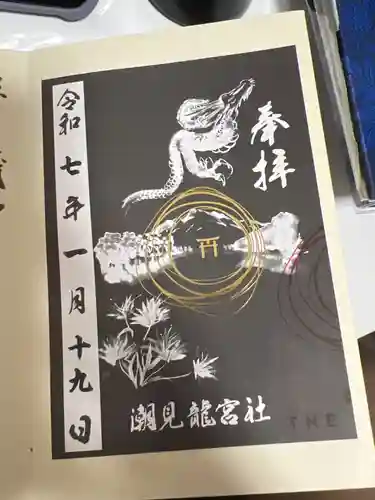 奉拝
令和七年一月十九日
潮見龍宮社
THE